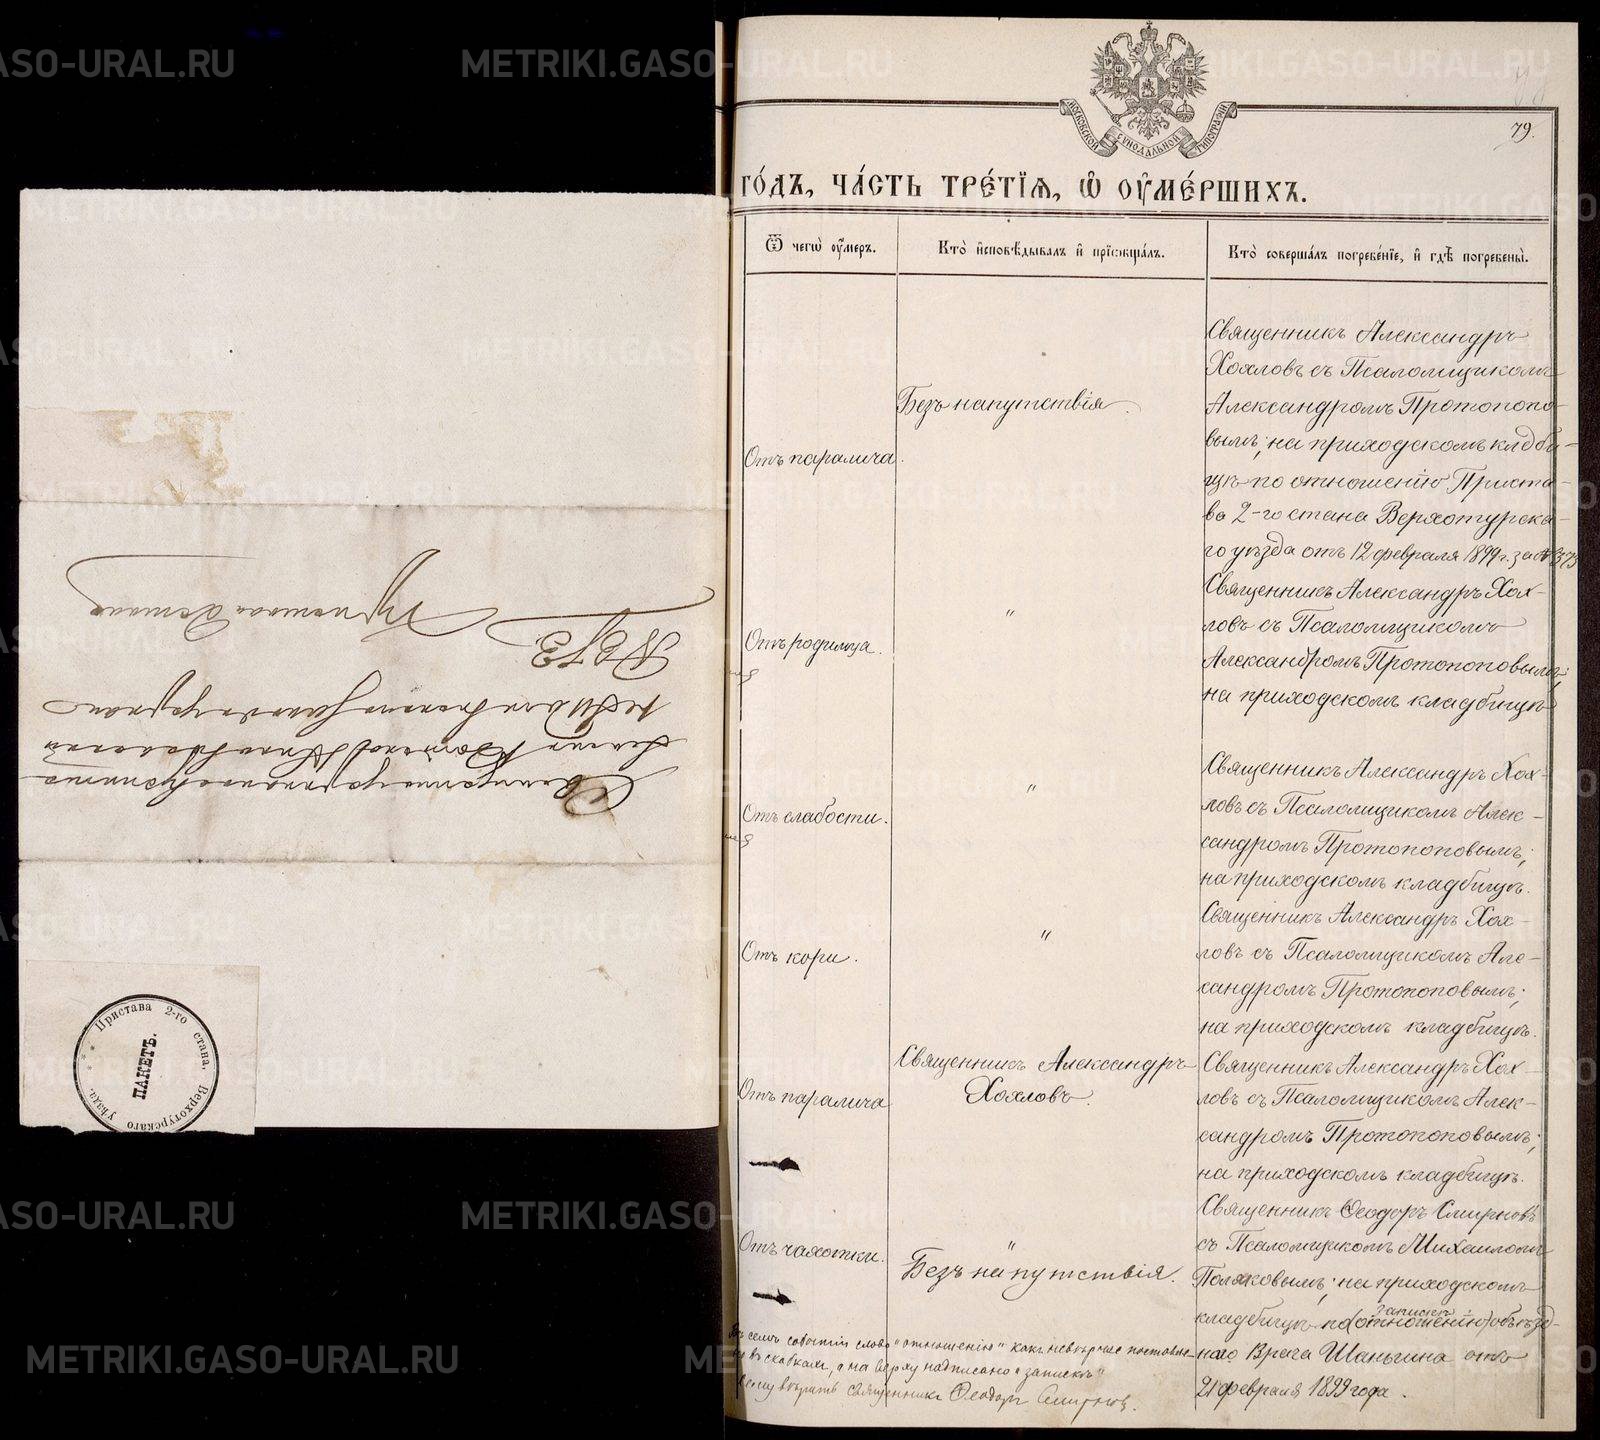 METRIKI.GASO-URAL.RU
МОСКОВСКОЙ СѴНОДАЛЬНОЙ ТИПОГРАФІИ
79.
ГО́ДЪ, ЧА́СТЬ ТРЕ́ТІѦ, Ѡ҆ ОУ҆МЕ́РШИХЪ.
Ѿ чегѡ̀ оу҆́меръ.
Кто̀ и҆сповѣ́дывалъ и҆ прїѡбща́лъ.
Кто̀ соверша́лъ погребе́нїе, и҆ гдѣ̀ погребены̀.
Отъ паралича.
Безъ напутствія.
Священникъ Александръ
Хохловъ съ Псаломщикомъ
Александромъ Протопопо-
вымъ; на приходскомъ кладби-
щѣ по отношенію Приста-
ва 2-го стана Верхотурска-
го уѣзда отъ 12 февраля 1899 г. за № 573
Отъ родимца.
"
Священникъ Александръ Хох-
ловъ съ Псаломщикомъ
Александромъ Протопоповымъ;
на приходскомъ кладбищѣ
Отъ слабости.
"
Священникъ Александръ Хох-
ловъ съ Псаломщикомъ Алек-
сандромъ Протопоповымъ;
на приходскомъ кладбищѣ.
Отъ кори.
"
Священникъ Александръ Хох-
ловъ съ Псаломщикомъ Але-
сандромъ Протопоповымъ;
на приходскомъ кладбищѣ.
Отъ паралича
Священникъ Александръ
Хохловъ.
Священникъ Александръ Хох-
ловъ съ Псаломщикомъ Алек-
сандромъ Протопоповымъ;
на приходскомъ кладбищѣ.
Отъ чахотки.
"
Безъ напутствія.
Священникъ Ѳеодоръ Смирновъ
съ Псаломщикомъ Михаиломъ
Поляковымъ; на приходскомъ
запискѣ
кладбищѣ по (отношенію) объѣзд-
наго Врача Шаньгина отъ
21 февраля 1899 года.
семъ событіи слово "отношенію" какъ невѣрное поставле-
но въ скобкахъ, а на верху надписано "запискѣ"
вѣрить священникъ Ѳеодоръ Смирновъ.
№ 573
Пристава 2-го стана, Верхотурскаго уѣзда.
ПАКЕТЪ.